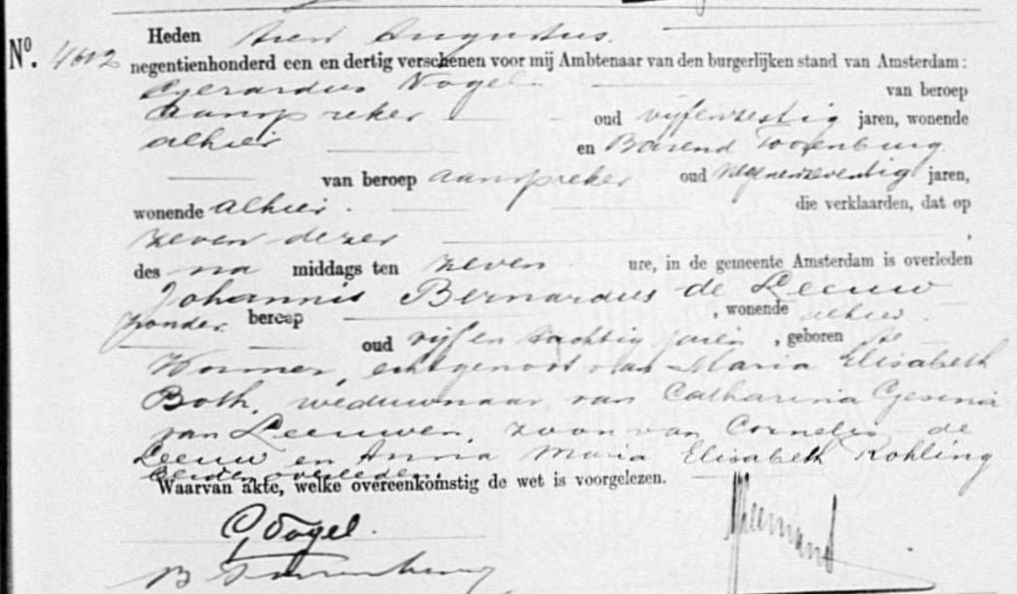 Heden tien Augustus.
Nº. 4612 negentienhonderd een en dertig verschenen voor mij Ambtenaar van den burgerlijken stand van Amsterdam:
Gerardus Vogel van beroep
aanspreker oud vijfenzestig jaren, wonende
alhier en Barend Toorenburg
van beroep aanspreker oud jaren,
wonende alhier. die verklaarden, dat op
zeven dezer,
des na middags ten zeven ure, in de gemeente Amsterdam is overleden
Johannis Bernardus de Leeuw
zonder beroep, wonende alhier.
oud vijf en tachtig jaren, geboren te
Wormer, echtgenoot van Maria Elisabeth
Both, weduwnaar van Catharina Gesina
van Leeuwen, zoon van Cornelis de
Leeuw en Anna Maria Elisabeth Rohling
beiden overleden.
Waarvan akte, welke overeenkomstig de wet is voorgelezen.
G Vogel.
B Toorenburg